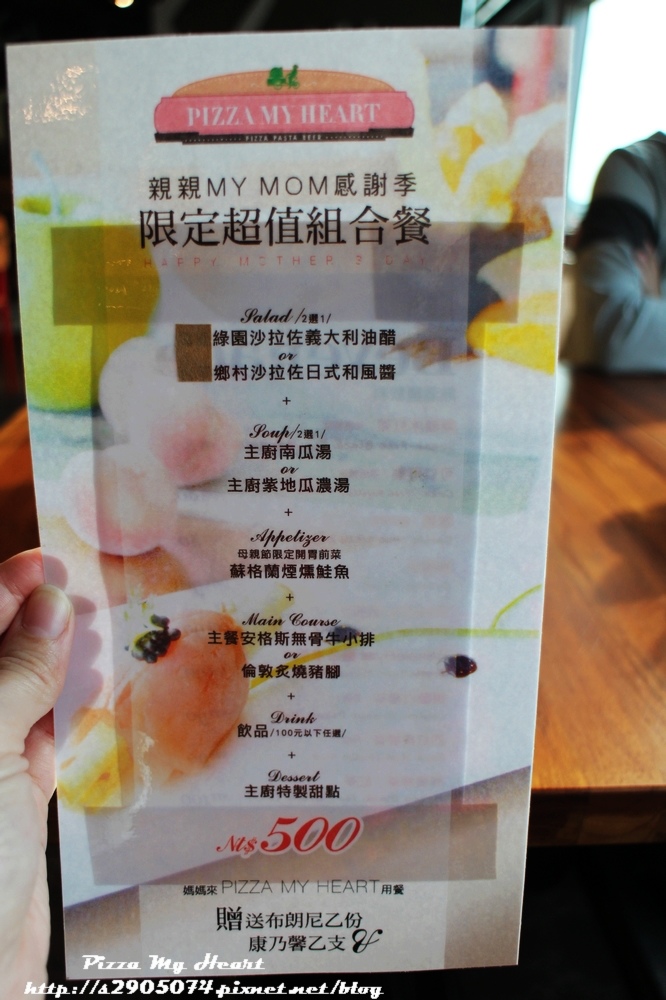 PIZZA MY HEART
PIZZA PASTA BEER
親親MY MOM感謝季
限定超值組合餐
HAPPY MOTHER'S DAY
Salad /2選1/
綠園沙拉佐義大利油醋
or
鄉村沙拉佐日式和風醬
+
Soup/2選1/
主廚南瓜湯
or
主廚紫地瓜濃湯
+
Appetizer
母親節限定開胃前菜
蘇格蘭煙燻鮭魚
+
Main Course
主餐安格斯無骨牛小排
or
倫敦炙燒豬腳
+
Drink
飲品/100元以下任選/
+
Dessert
主廚特製甜點
NT$500
媽媽來PIZZA MY HEART用餐
贈送布朗尼乙份
康乃馨乙支 &
Pizza My Heart
http://s2905074.pixnet.net/blog